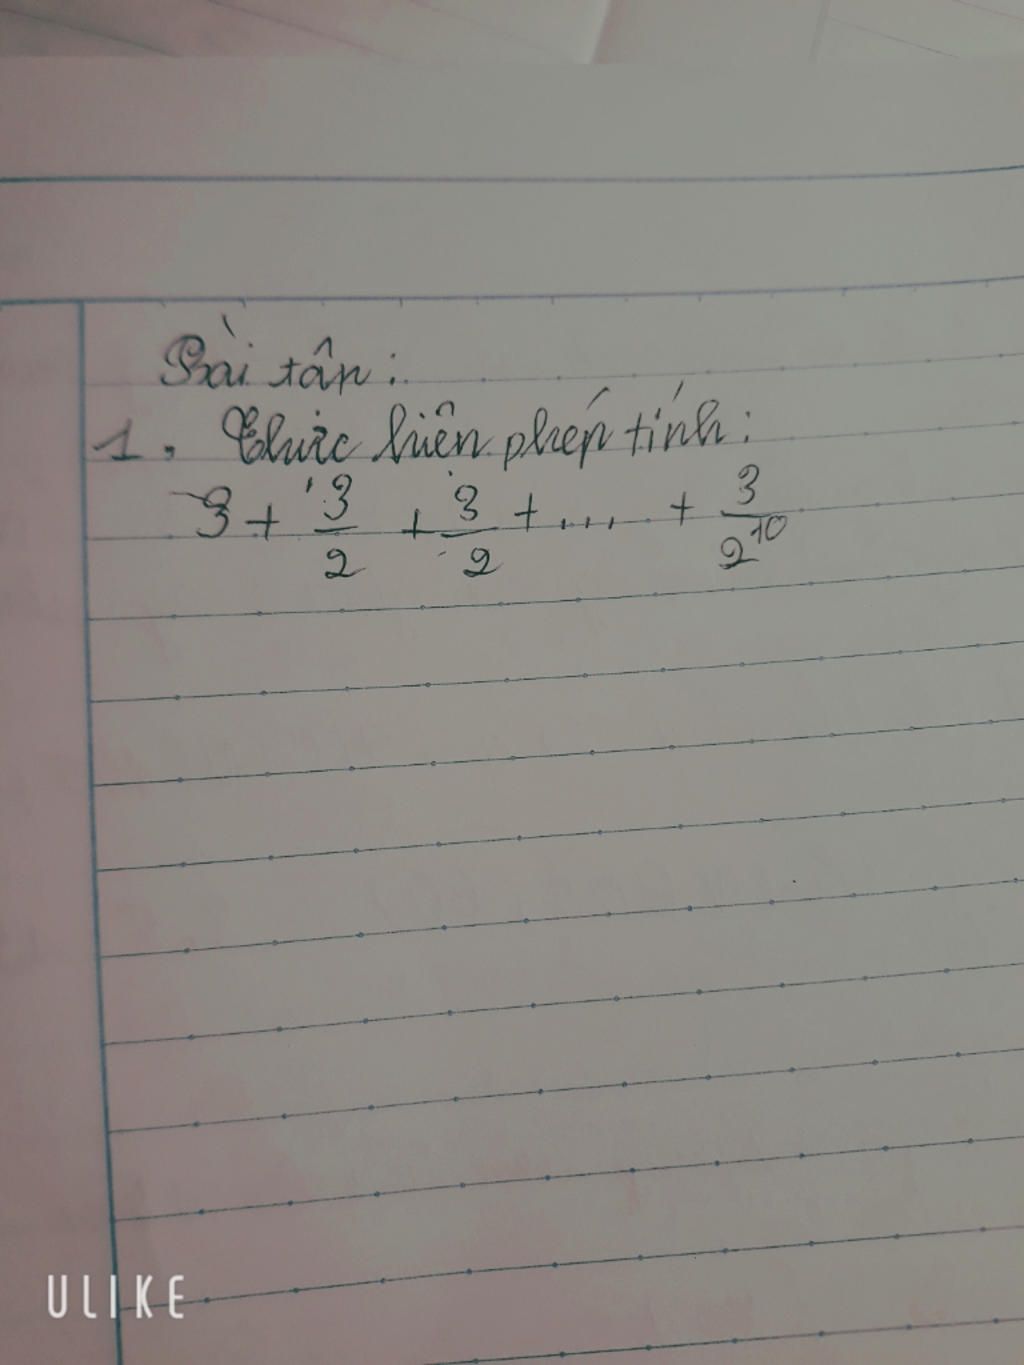 Bài tân:
1. Thực hiên phép tính:
3 + 3/2 + 3/2 + .... + 3/2^10
ULIKE